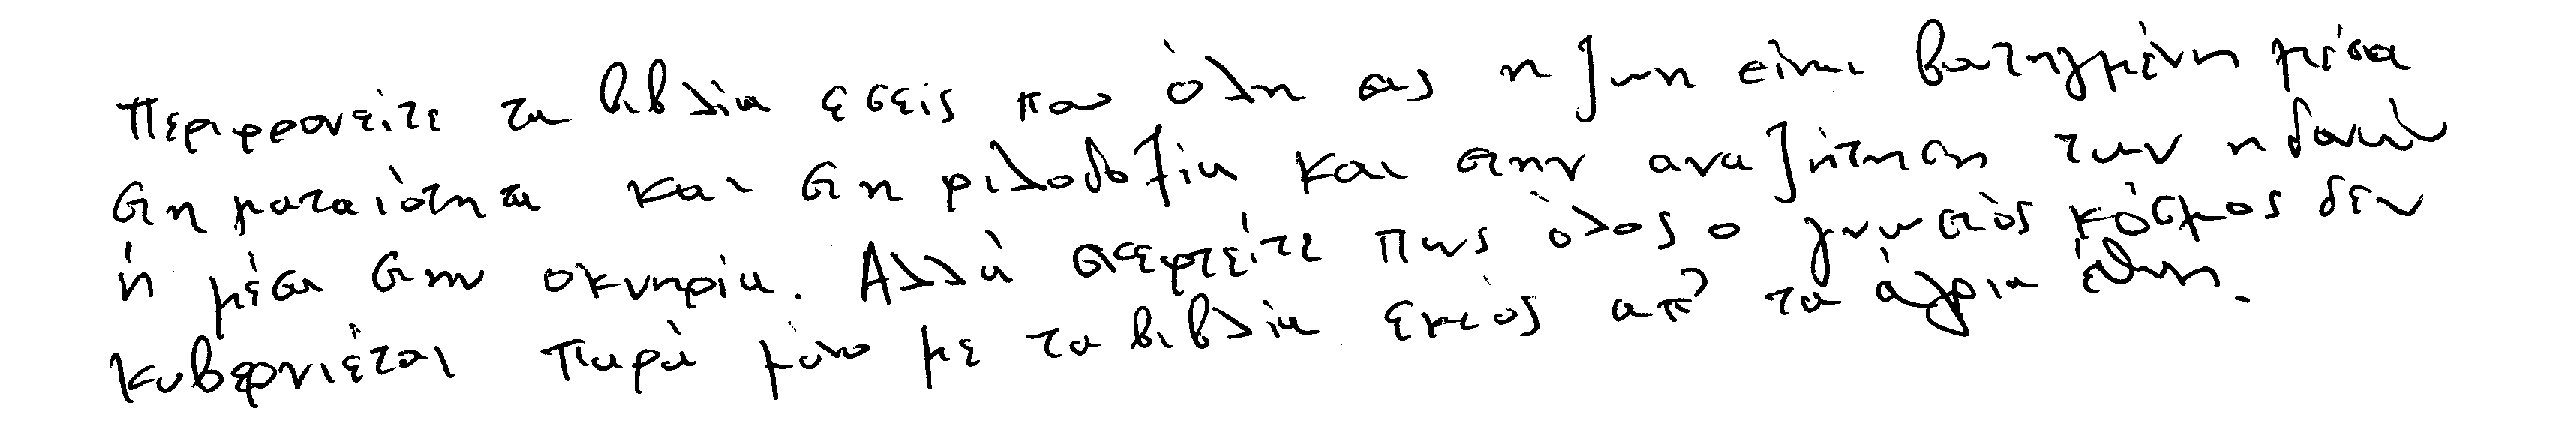 Περιφρονείτε τα βιβλία εσείς που όλη σας η ζωή είναι βουτηγμένη μέσα
στη ματαιότητα και στη φιλοδοξία και στην αναζήτηση των ηδονών
ή μέσα στην οκνηρία. Αλλά σκεφτείτε πως όλος ο γνωστός κόσμος δεν
κυβερνιέται παρά μόνο με τα βιβλία εκτός απ' τα άγρια έθνη.